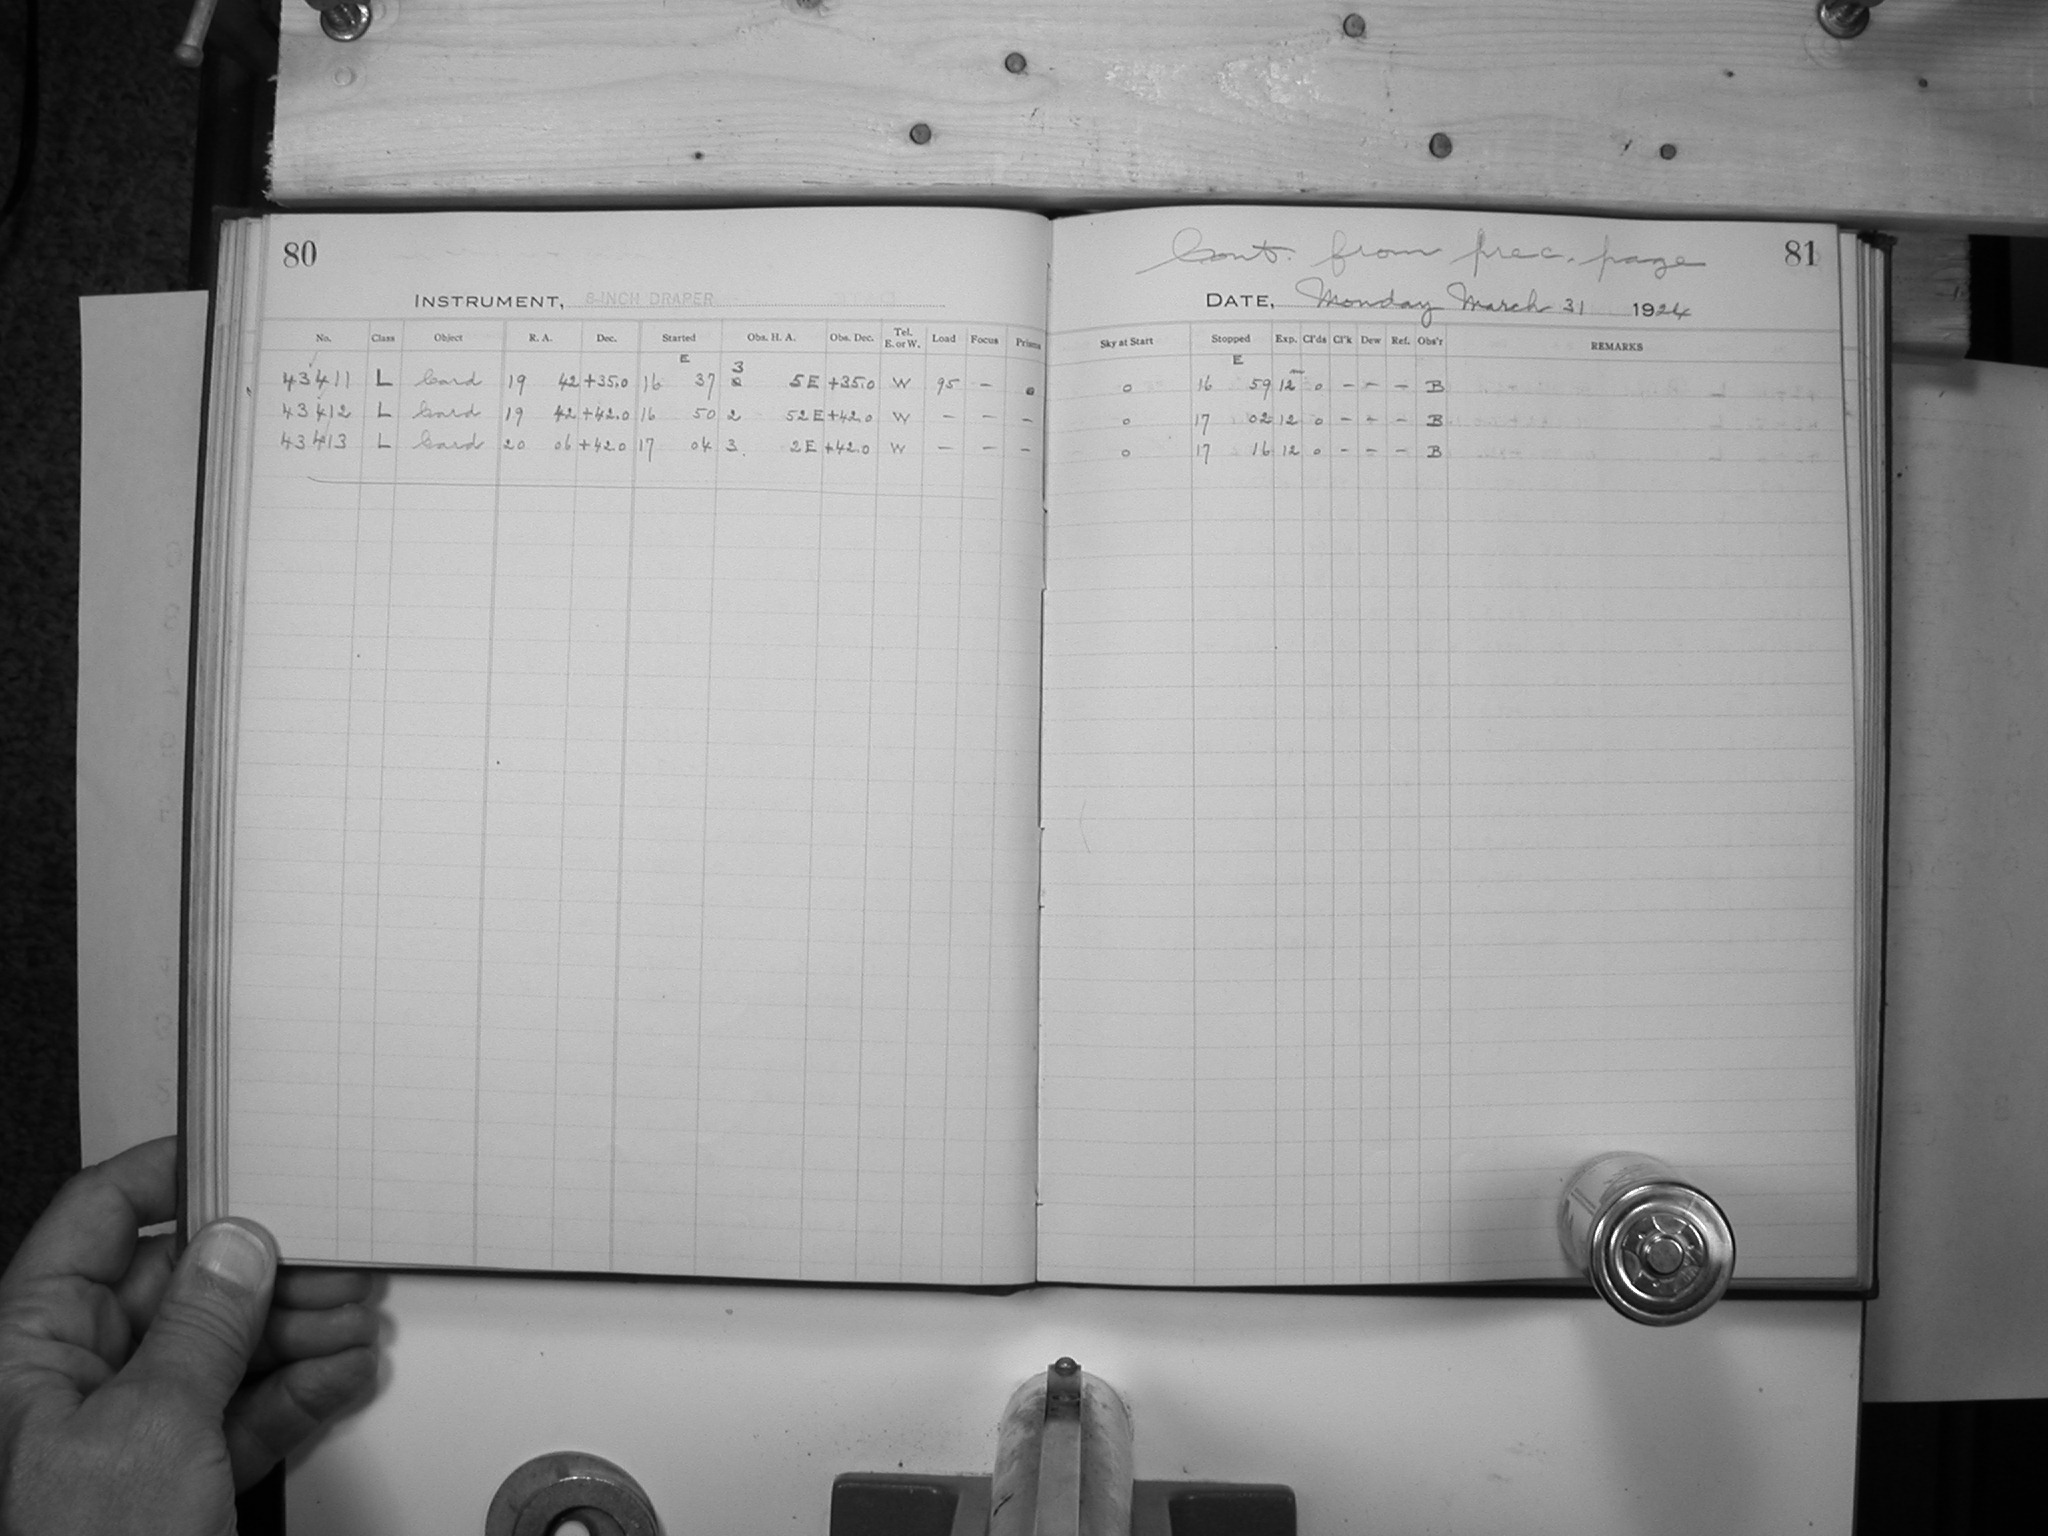 80
INSTRUMENT, 8-INCH DRAPER
No. Class Object R. A. Dec. Started Obs. H. A. Obs. Dec. Tel. E. or W. Load Focus Prisms
E
3
43411 L Card 19 42 +35.0 16 37 2 5 E +35.0 W 95 –
43412 L Card 19 42 +42.0 16 50 2 52 E +42.0 W – – –
43413 L Card 20 06 +42.0 17 04 3 2 E +42.0 W – – –
Cont. from prec. page 81
DATE, Monday March 31 1924
Sky at Start Stopped Exp. Cl'ds Cl'k Dew Ref. Obs'r REMARKS
E
0 16 59 12 0 – – – B
0 17 02 12 0 – – – B
0 17 16 12 0 – – – B